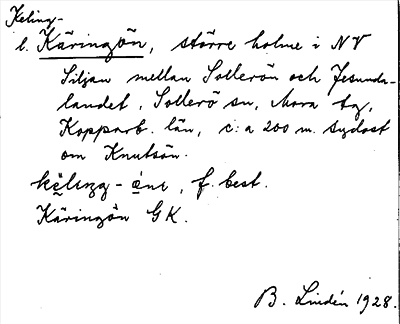 Keling-
l. Käringön, större holme i NV
Siljan mellan Sollerön och Jesunda-
landet, Sollerö sn, Mora tg,
Kopparb. län, c:a 200 m. sydost
om Knutsön.
kèlıŋg-áne, f. best.
Käringön GK.
B. Lindén 1928.